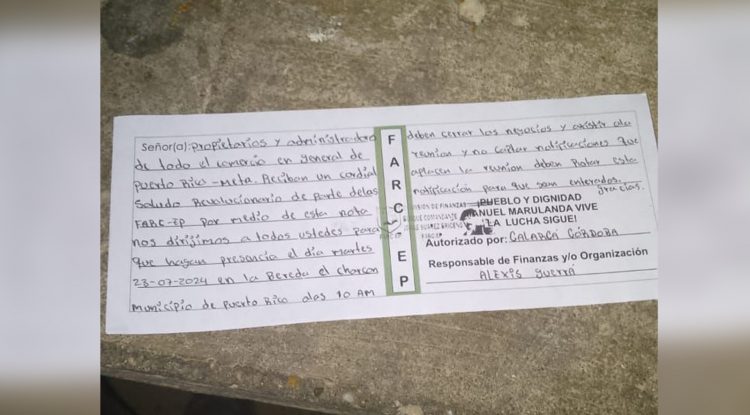 Señor(a): propietarios y administradora
de todo el comercio en general de
puerto Rico - meta. Reciban un cordial
Saludo Revolucionario de parte delas
FARC-EP por medio de esta nota
nos dirijimos a todos ustedes para
que hagan presencia el día martes
23-07-2024 en la Bereda el charcon
municipio de puerto Rico alas 10 AM
FARC EP
deben cerrar los negocios y asistir ala
reunion y no coptar notificaciones que
aplacen la reunion deben Rotar esta
notificación para que sean enterados.
gracias.
DIVISION DE FINANZAS
BLOQUE COMANDANTE
JORGE SUAREZ BRICEÑO
FARC-EP
PUEBLO Y DIGNIDAD
MANUEL MARULANDA VIVE
¡LA LUCHA SIGUE!
Autorizado por: CALARCÁ CÓRDOBA
Responsable de Finanzas y/o Organización
ALEXIS GUERRA